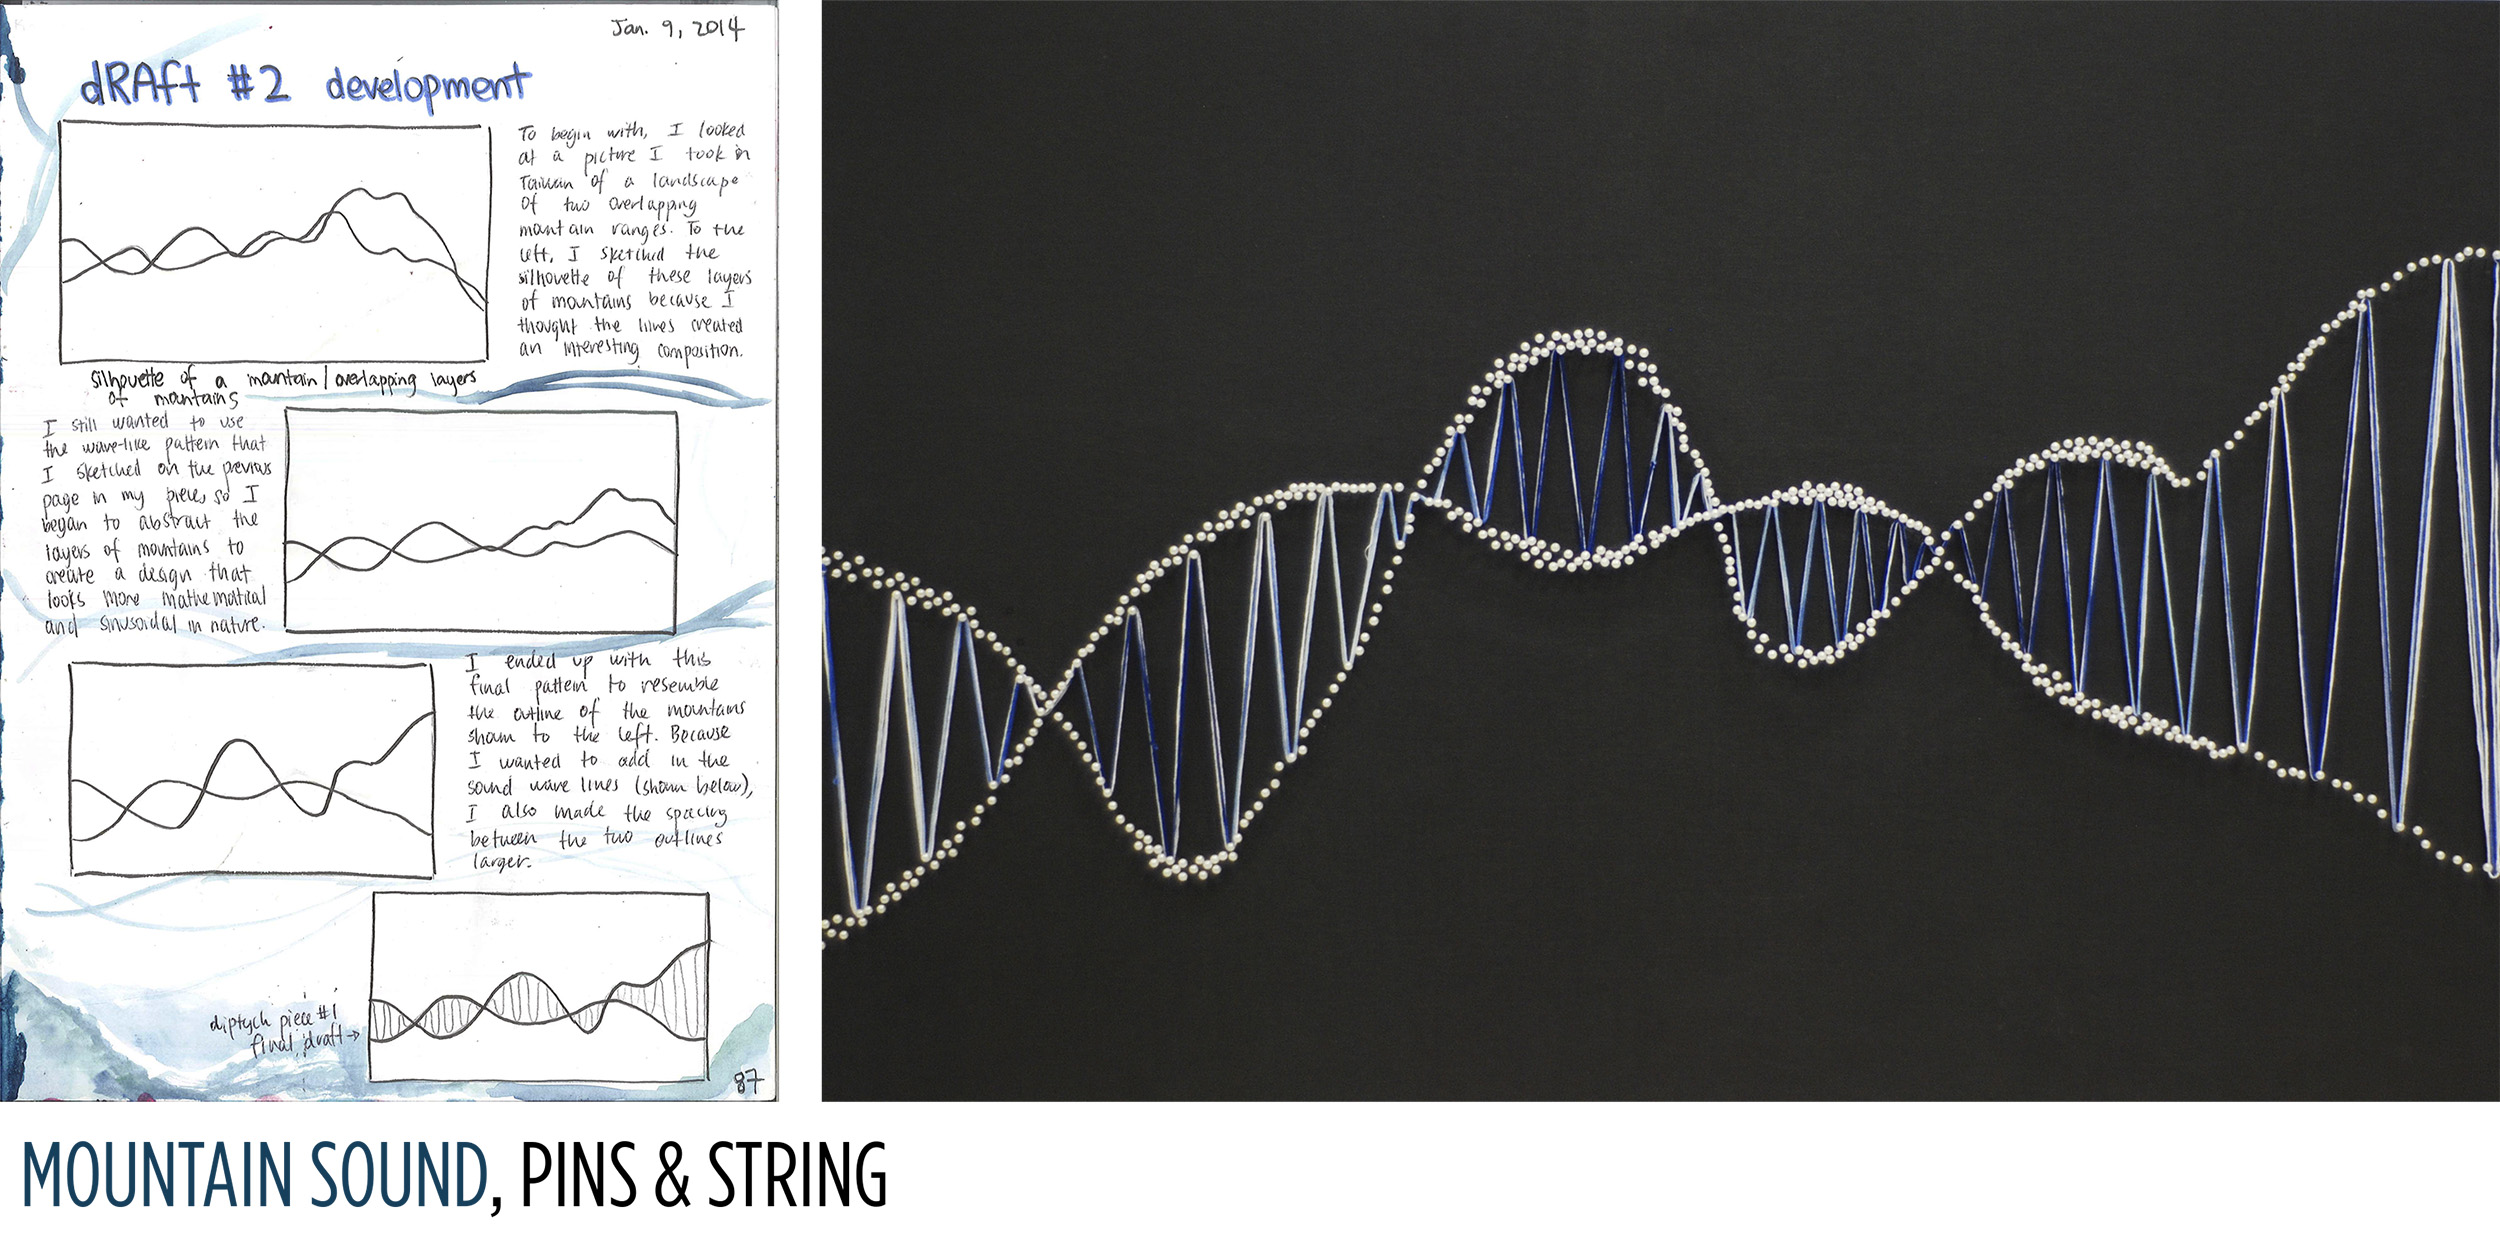 Jan. 9, 2014
dRAft #2 development
To begin with, I looked
at a picture I took in
Taiwan of a landscape
of two overlapping
mountain ranges. To the
left, I sketched the
silhouette of these layers
of mountains because I
thought the lines created
an interesting composition.
silhouette of a mountain/overlapping layers
of mountains
I still wanted to use
the wave-like pattern that
I sketched on the previous
page in my piece, so I
began to abstract the
layers of mountains to
create a design that
looks more mathematical
and sinusoidal in nature.
I ended up with this
final pattern to resemble
the outline of the mountains
shown to the left. Because
I wanted to add in the
sound wave lines (shown below),
I also made the spacing
between the two outlines
larger.
diptych piece #1
final draft →
87
MOUNTAIN SOUND, PINS & STRING